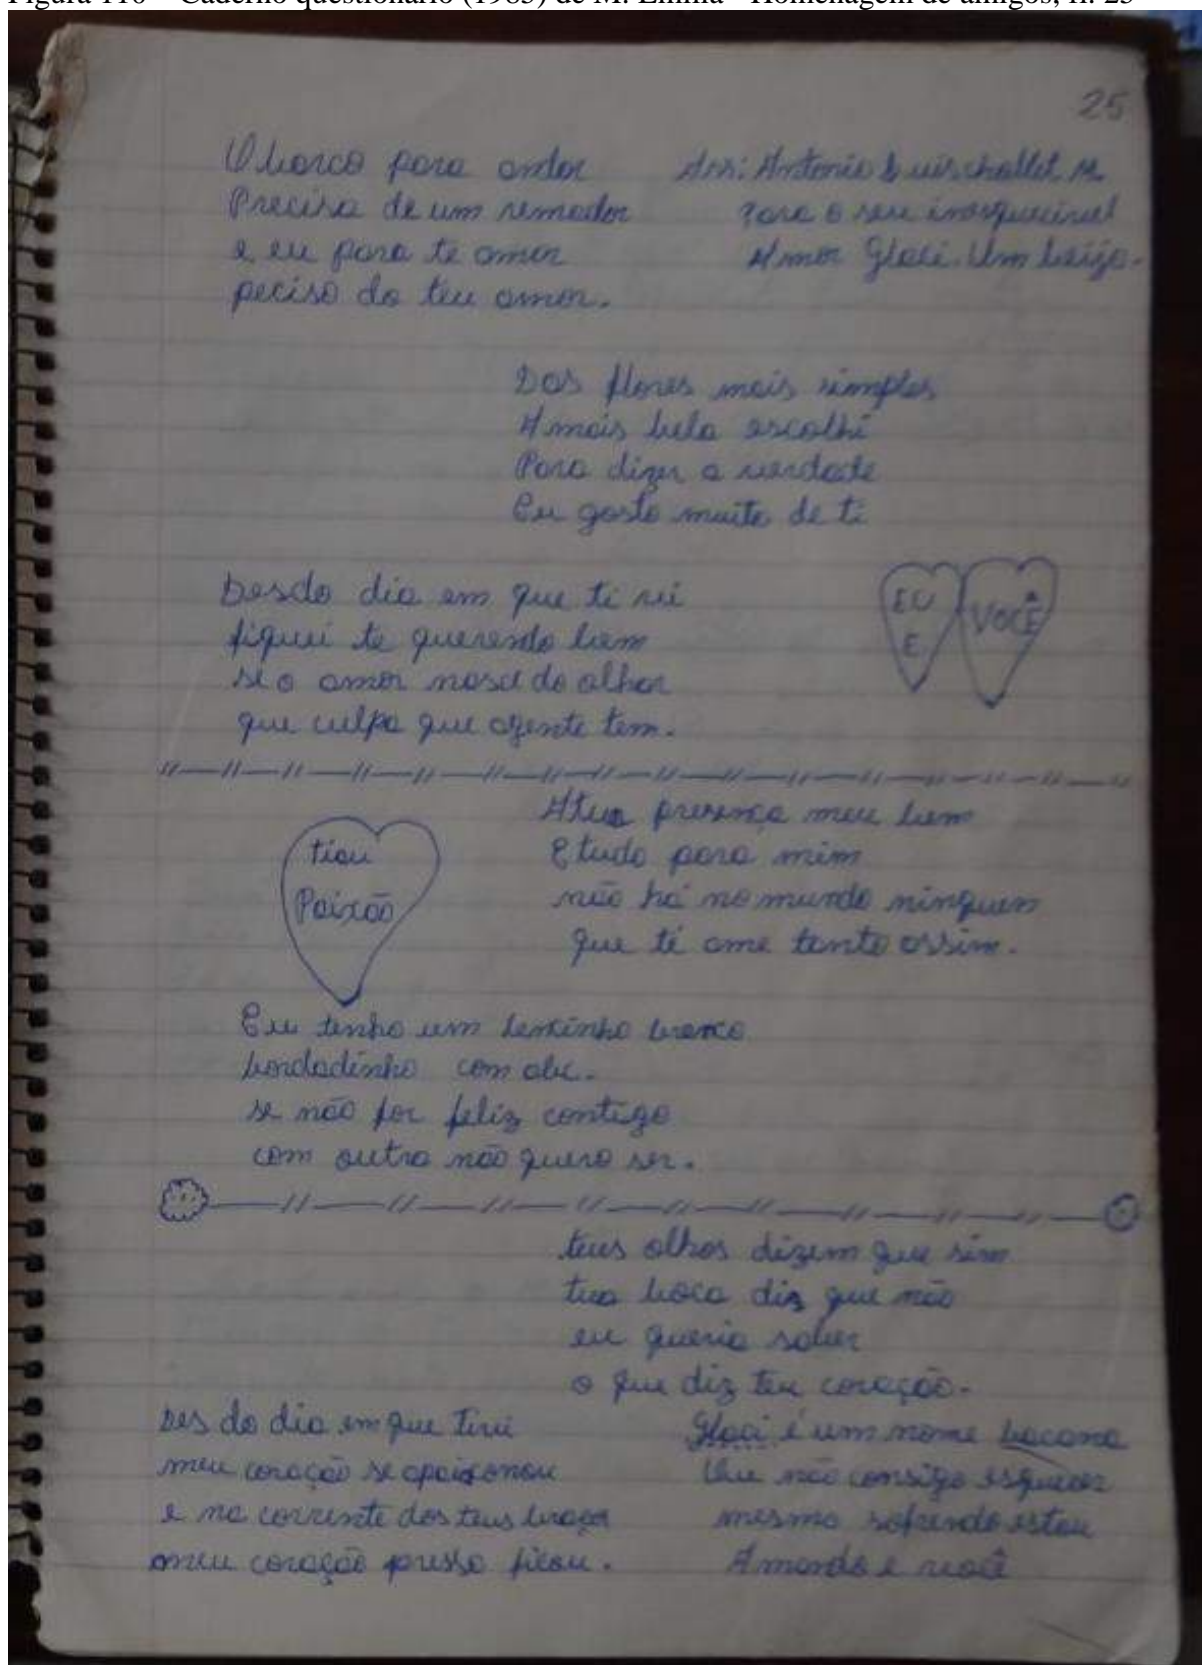 Figura 116 – Caderno questionário (1985) de M. Emília - Homenagem de amigos, fl. 25
25
O barco para andar
Precisa de um remador
e eu para te amar
peciso do teu amor.
Ass: Antonio Luis M.
para o seu inesquecivel
Amor Glaci. Um beijo.
Das flores mais simples
A mais bela escolhi
Para dizer a verdade
Eu gosto muito de ti
Desdo dia em que ti vi
fiquei te querendo bem
se o amor nasce do olhar
que culpa que agente tem.
EU
E
VOCÊ
A tua presença meu bem
E tudo para mim
não há no mundo ninguem
que ti ame tanto assim.
Paixão
Eu tenho um lencinho branco
bordadinho com abc.
se não for feliz contigo
com outra não quero ser.
teus olhos dizem que sim
tua boca diz que não
eu queria saber
o que diz teu coração.
Des do dia em que ti vi
meu coração se apaixonou
e na corrente dos teus braços
meu coração presso ficou.
Glaci é um nome bacana
Que não consigo esquecer
mesmo sofrendo estou
Amando e você